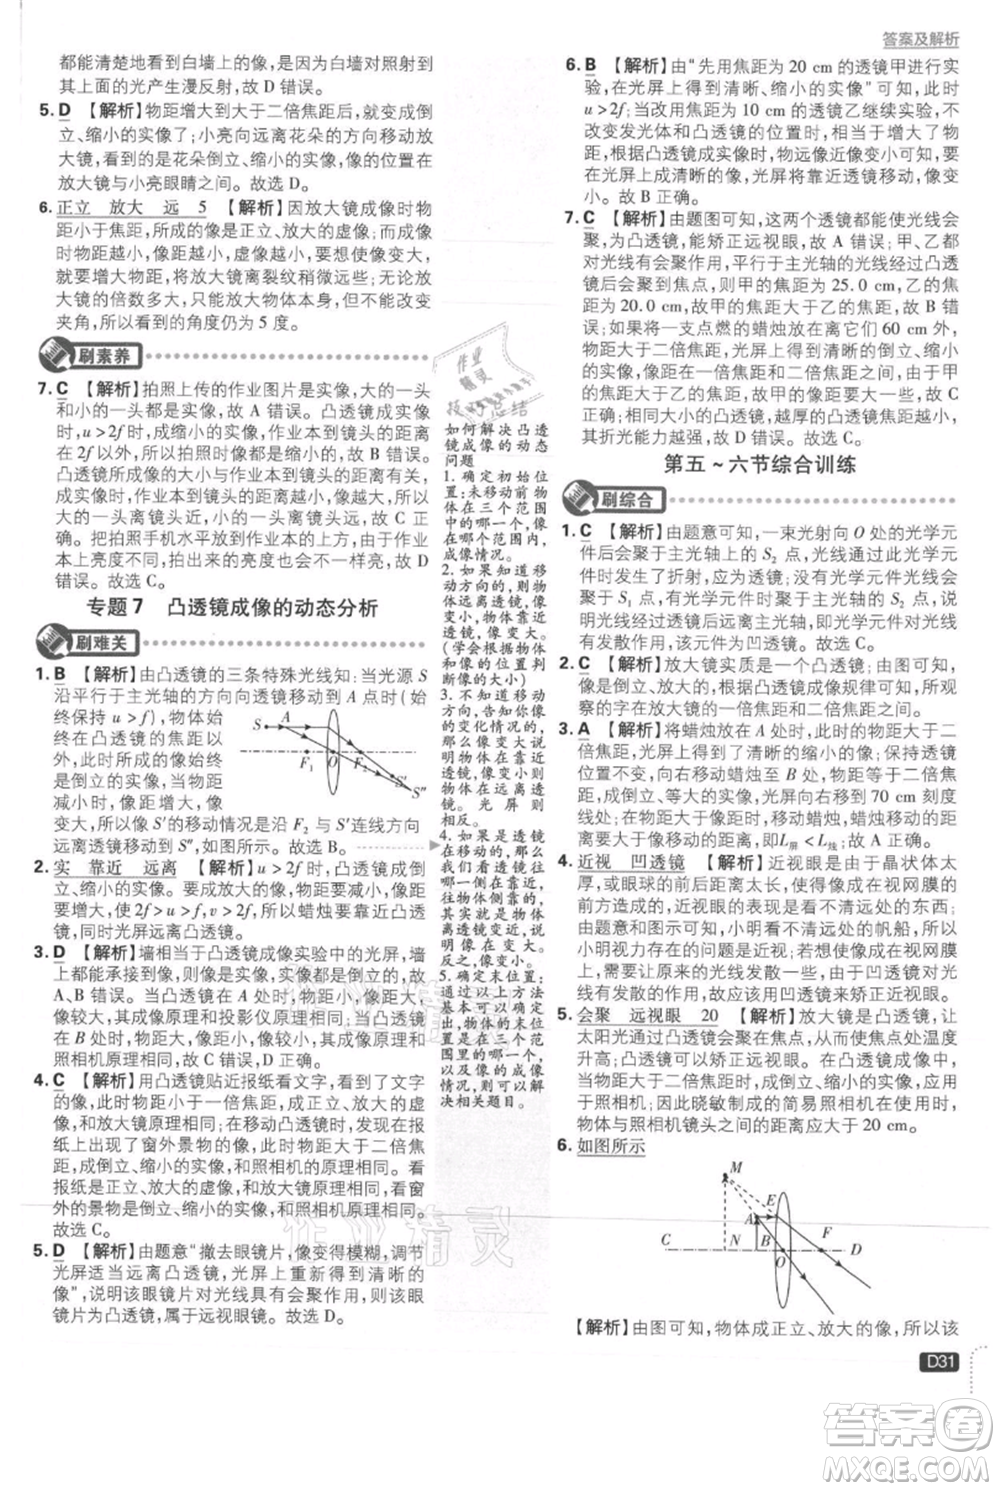 答案及解析
都能清楚地看到白墙上的像,是因为白墙对照射到
其上面的光产生漫反射,故 D 错误。
5. D 【解析】物距增大到大于二倍焦距后,就变成倒
立、缩小的实像了;小亮向远离花朵的方向移动放
大镜,看到的是花朵倒立、缩小的实像,像的位置在
放大镜与小亮眼睛之间。故选 D。
6. 正立 放大 远 5 【解析】因放大镜成像时物
距小于焦距,所成的像为正立、放大的虚像;而成像
时物距越小,像距越小,虚像越小,若想使像变大,
就要增大物距,将放大镜离裂纹稍微远一些;无论放
大镜的倍数多大,只能放大物体本身,但不能改变
夹角,所以看到的角度仍为 5 度。
刷素养
7. C 【解析】拍照上传的作业图片是实像,大的一头
和小的一头都是实像,故 A 错误。凸透镜成实像
时,u>2f 时,成缩小的实像,作业本到镜头的距离
应大于二倍焦距,而不是任意的,故 B 错误。
凸透镜所成像的大小与物体到凸透镜的距离有关,
成实像时,作业本到镜头的距离近的像大,远的像
小,大的一头镜头近,小的一头镜头远,故 C 正
确。把拍照手机水平放到作业本的上方,由于作业
本上亮度不同,拍出来的亮度也不一样亮,故 D
错误。故选 C。
专题 7 凸透镜成像的动态分析
刷难关
1. B 【解析】由凸透镜的三条特殊光线知:当光源 S
沿平行于主光轴的方向向透镜移动到 A 点时(始
终保持 u>f),物体始
终在凸透镜的焦距以
外,此时所成的像始终
是实像,当物距
减小时,像距增大,像
变大,所以像 S′的移动情况是沿 F₂ 与 S′连线方向
远离透镜移动到 S″,如图所示。故选 B。
S A F₁ O F₂ S′ S″
2. 实 靠近 远离 【解析】u>2f 时,凸透镜成倒立、缩
小的实像。要成放大的像,物距要减小,像距要增
大,即要使 2f>u>f,v>2f,所以蜡烛要靠近凸透
镜,同时光屏远离凸透镜。
3. D 【解析】墙相当于凸透镜成像实验中的光屏,墙
上都能承接到像,则像是实像,是倒立的像,故
A、B 错误。当凸透镜在 A 处时,物距小,像距大,成
放大的像,成像原理和投影仪原理相同。当凸透镜
在 B 处时,物距大,像距小,成缩小的像,和照相
机的成像原理相同,故 C 错误,D 正确。
4. C 【解析】用凸透镜贴近报纸看文字,看到了文字
的像,此时物距小于一倍焦距,成正立、放大的虚
像,和放大镜的原理相同。在移动凸透镜后,在报
纸上出现了窗外景物的像,此时物距大于二倍焦
距,成倒立、缩小的实像,和照相机的原理相同。看
报纸的是正立、放大的虚像,与放大镜原理相同;窗
外的景物的像是倒立、缩小的实像,与照相机相同。
故选 C。
5. D 【解析】由题意“撤去眼镜片,像变得模糊,调节
光屏适当远离凸透镜,光屏上重新得到清晰的
像”,说明该眼镜片对光线具有会聚作用,则该眼
镜片为凸透镜,属于远视眼镜。故选 D。
如何解决凸透
镜成像的动态
问题
1. 确定初始位
置:未移动前物体
在哪个范围内,
2. 如果知道移动
方向的,则物体
远离透镜,像变
小,物体靠近透
镜,像变大。
(学会根据物体
和像的位置判
断像的大小)
3. 不知道移动
方向,知道像的
变化情况的,那
么像变大说明
物体靠近透镜,
像变小则远离
透镜。光屏则
相反。
4. 如果是透镜
在移动的,那么
我们看透镜往
哪一侧靠近,那
么哪一侧的物
体就在靠近透
镜。
5. 确定末位置,
通过以上方法
基本可以确定
物体的末位置
在哪个成像范
围里面,则成像
情况就可以解
决相关题目。
6. B 【解析】由“先用焦距为 20 cm 的透镜甲进行实
验,在光屏上得到清晰、缩小的实像”可知,此时
u>2f;当改用焦距为 10 cm 的透镜乙继续实验,不
改变发光体和凸透镜的位置时,物距不变,焦距变
小,根据凸透镜成实像时,物远像近像变小可知,
在光屏上成清晰的像,光屏应向透镜靠近,像会变
小。故 B 正确。
7. C 【解析】由题图可知,这两个透镜都能使光线会
聚,为凸透镜,能矫正远视眼,故 A 错误;甲、乙都
对光有会聚作用,平行于主光轴的光线经过凸透
镜后会聚到焦点,甲的焦点到透镜的距离为 25.0
cm,乙为 20.0 cm,故甲的焦距大于乙的焦距,故 B 错
误;如图所示,将一支点燃的蜡烛放在离乙 60 cm 处,
此时物距大于二倍焦距,光屏上得到清晰的像,则
像距大于一倍焦距小于二倍焦距,所成的像是倒
立、缩小的实像;由于甲的焦距大于乙的焦距,故 C
正确;相同大小的凸透镜,越厚的凸透镜焦距越小,
其折光能力越强,故 D 错误。故选 C。
第五~六节综合训练
刷综合
1. C 【解析】由题意可知,一束光射向 O 处的光学元
件后会聚于主光轴上的 S₂ 点,光线经过此光学元
件时发生了折射,可能是透镜;没有光学元件时
会聚到 S₁ 点,有光学元件时光线会聚到 S₂ 点,说
明光线经过光学元件后推迟会聚,即光学元件对光线
有发散作用,故该元件为凹透镜。故选 C。
2. C 【解析】放大镜实质是一个凸透镜;由图可知,
像是倒立、放大的,由凸透镜成像规律可知,所
观察的字在放大镜的一倍焦距和二倍焦距之间。
3. A 【解析】将蜡烛放在 A 处时,此时的物距大于二
倍焦距,光屏上得到缩小的、倒立的实像;保持透镜
位置不变,向右移动蜡烛至 B 处,物距小于二倍焦
距、大于一倍焦距,成像变大,光屏向右移到 70 cm 刻度
线处;在此过程中,物距减小,像距变大,蜡烛移动的
距离要大于像移动的距离,即L屏<L烛;故 A 正确。
4. 近视 凹透镜 【解析】近视眼是由于晶状体太
厚,或眼球的前后距离太长,使像成在视网膜的
前方形成的,因此,近视眼看不清远处的东西;
由题意和图示可知,小明看不清远处的帆船,所以
小明视力存在的问题是近视;要想使像成在视网膜上,
就需使原来的光线发散一些,由于凹透镜对光
线有发散作用,所以应佩戴凹透镜进行矫正。
5. 会聚 远视眼 20 【解析】放大镜是凸透镜,让
太阳光通过凸透镜后会聚在焦点处,使焦点处温度
升高;凸透镜可以矫正远视眼。在凸透镜成像中,
当物距大于二倍焦距时,成倒立、缩小的实像,应用
于照相机;因此晓敏制成的简易照相机在使用时,
物体与照相机镜头之间的距离应大于 20 cm。
6. 如图所示
M A E C N B O F D
【解析】由图可知,物体成正立、放大的像,所以该
D31
作业精灵
答案卷
MXQE.COM